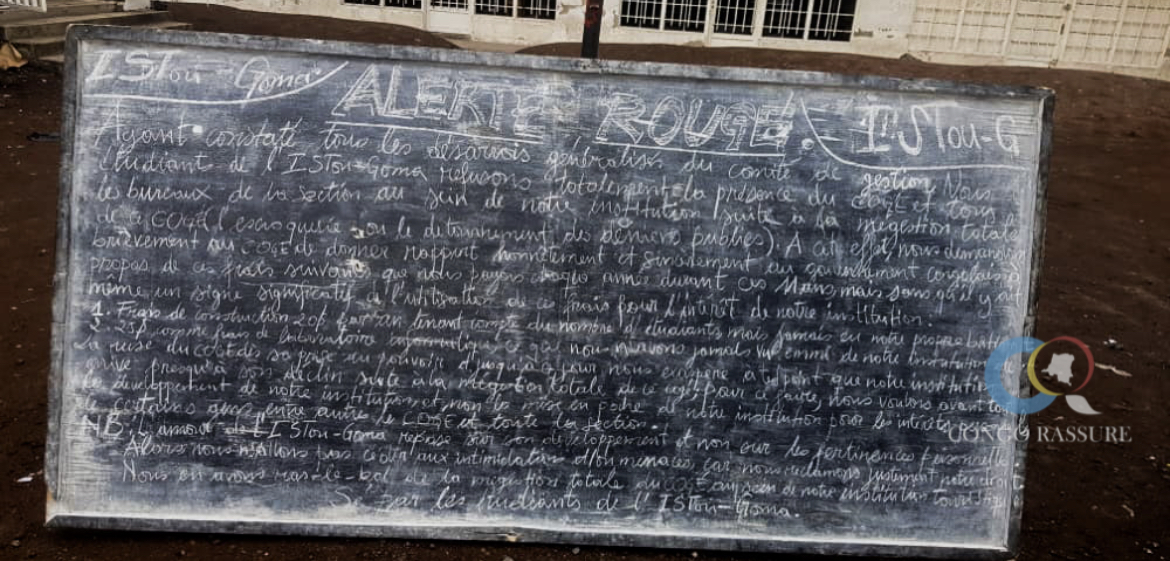 ISTou-Goma ALERTE ROUGE! ISTou-G
Ayant constaté tous les désarrois généralisés du comité de gestion, Nous
étudiant de l'ISTou-Goma refusons totalement la présence du COGE et tous
les bureaux de la section au sein de notre institution (suite à la mégestion totale
de ce COGE l'escroquerie ou le détournement des deniers publics). A cet effet, nous demandons
brièvement au COGE de donner rapport honnêtement et sincèrement au gouvernement
propos de ces frais suivants que nous payons chaque année durant ces mais sans qu'il y ait
même un signe significatif de l'utilisation de ces frais pour l'intérêt de notre institution.
1. Frais de construction 20$ tenant compte du nombre d'étudiants mais jamais eu notre propre
2. 25$ comme frais de laboratoire informatique ce que nous n'avons jamais vu de notre institution
la ruse du COGE dès sa prise au pouvoir jusqu'à jour nous exaspère à tel point que notre institution
arrive presqu'à son déclin suite à la mégestion totale de ce pour ce faire, nous voulons avant
le développement de notre institution et non la mise en poche de notre institution pour les intérêts
de certaines entre autres le COGE et toute la section.
NB: L'amour de l'ISTou-Goma repose sur son développement et non sur les pertinences personnelle
Alors nous n'allons pas céder aux intimidations menaces car nous réclamons justement notre droit
Nous en avons ras-le-bol de la mégestion totale du COGE au sein de notre institution
Sé/par les étudiants de l'ISTou-Goma.
CONGO RASSURE